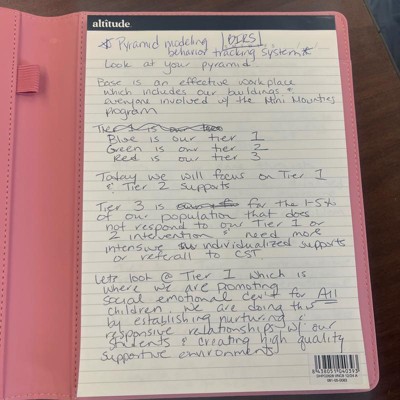 altitude
* Pyramid modeling | BIRS |
behavior tracking system *
Look at your pyramid
Base is an effective workplace
which includes our buildings &
everyone involved w/ the Mini Mounties
program
Tier 1 is our
Blue is our tier 1
Green is our tier 2
Red is our tier 3
Today we will focus on Tier 1
& Tier 2 supports
Tier 3 is for the 1-5%
of our population that does
not respond to our Tier 1 or
2 intervention & need more
intensive individualized supports
or referall to CST
Lets look @ Tier 1 which is
where we are promoting
social emotional devt for All
children. We are doing this
by establishing nurturing &
responsive relationships w/ our
students & creating high quality
supportive environments